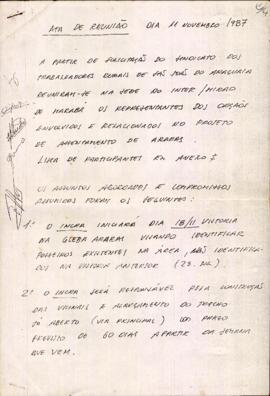 ATA DE REUNIÃO DIA 11 NOVEMBRO/1987
A PARTIR DE SOLICITAÇÃO DO SINDICATO DOS
TRABALHADORES RURAIS DE SÃO JOÃO DO ARAGUAIA
REUNIRAM-SE NA SEDE DO INTER/MIRAD
DE MARABÁ OS REPRESENTANTES DOS ORGÃOS
ENVOLVIDOS E RELACIONADOS NO PROJETO
DE ASSENTAMENTO DE ARARAS.
LISTA DE PARTICIPANTES EM ANEXO
OS ASSUNTOS ABORDADOS E COMPROMISSOS
ASSUMIDOS FORAM OS SEGUINTES:
1- O INCRA INICIARÁ DIA 18/11 VISTORIA
NA GLEBA ARARAS VISANDO IDENTIFICAR
POSSEIROS EXISTENTES NA ÁREA, NÃO IDENTIFICA-
DOS NA VISTORIA ANTERIOR
2- O INCRA SERÁ RESPONSÁVEL PELA CONSTRUÇÃO
DAS VICINAIS E ALARGAMENTO DO TRECHO
JÁ ABERTO (VIA PRINCIPAL) COM PRAZO
PREVISTO DE 60 DIAS A PARTIR DA SEMANA
QUE VEM.